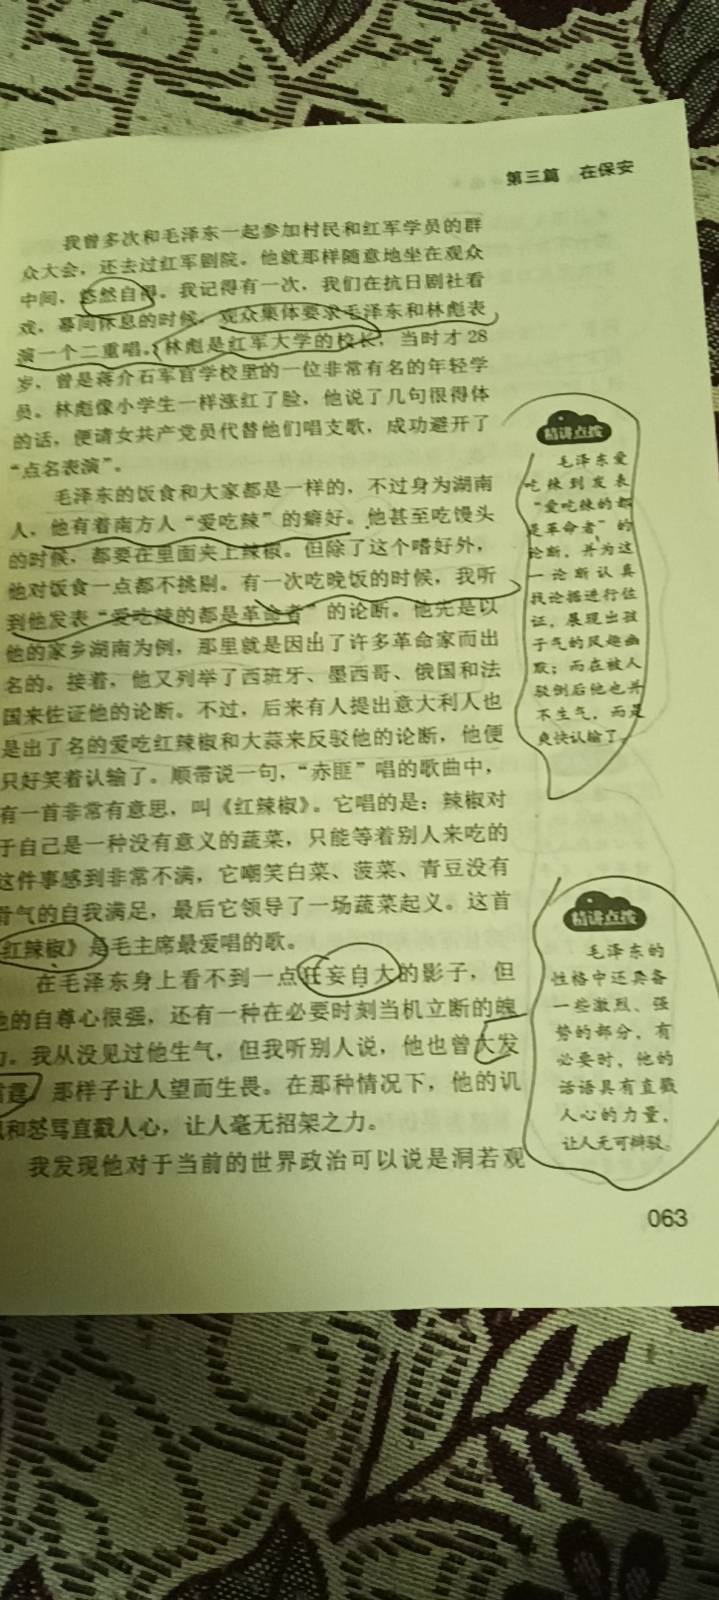 第三篇 在保安
我曾多次和毛泽东一起参加村民和红军学员的群
众大会，还去过红军剧院。他就那样随意地坐在观众
中间，悠然自得。我记得有一次，我们在抗日剧社看
戏，幕间休息的时候，观众集体要求毛泽东和林彪表
演一个二重唱。林彪是红军大学的校长，当时才28
岁，曾是蒋介石军官学校里的一位非常有名的年轻学
员。林彪像小学生一样涨红了脸，他说了几句很得体
的话，便请女共产党员代替他们唱支歌，成功避开了
“点名表演”。
毛泽东的饭食和大家都是一样的，不过身为湖南
人，他有着南方人“爱吃辣”的癖好。他甚至吃馒头
的时候，都要在里面夹上辣椒。但除了这个嗜好外，
他对饭食一点都不挑剔。有一次吃晚饭的时候，我听
到他发表“爱吃辣的都是革命者”的论断。他先是以
他的家乡湖南为例，那里就是因出了许多革命家而出
名的。接着，他又列举了西班牙、墨西哥、俄国和法
国来佐证他的论断。不过，后来有人提出意大利人也
是出了名的爱吃红辣椒和大蒜来反驳他的论断，他便
只好笑着认输了。顺带说一句，“赤匪”唱的歌曲中，
有一首非常有意思，叫《红辣椒》。它唱的是：辣椒对
于自己是一种没有意义的蔬菜，只能等着别人来吃的
这件事感到非常不满，它嘲笑白菜、菠菜、青豆没有
骨气的自我满足，最后它领导了一场蔬菜起义。这首
红辣椒》是毛主席最爱唱的歌。
在毛泽东身上看不到一点狂妄自大的影子，但
他的自尊心很强，还有一种在必要时刻当机立断的魄
力。我从没见过他生气，但我听别人说，他也曾大发
雷霆，那样子让人望而生畏。在那种情况下，他的讥
讽和怒骂直戳人心，让人毫无招架之力。
我发现他对于当前的世界政治可以说是洞若观
精讲点拨
毛泽东爱
吃辣到发表
“爱吃辣的都
是革命者”的
论断，并为这
一论断认真
找论据进行佐
证，展现出孩
子气的风趣幽
默；而在被人
驳倒后他也并
不生气，而是
爽快认输了。
精讲点拨
毛泽东的
性格中还具备
一些激烈、强
势的部分，有
必要时，他的
话语具有直戳
人心的力量，
让人无可辩驳。
063